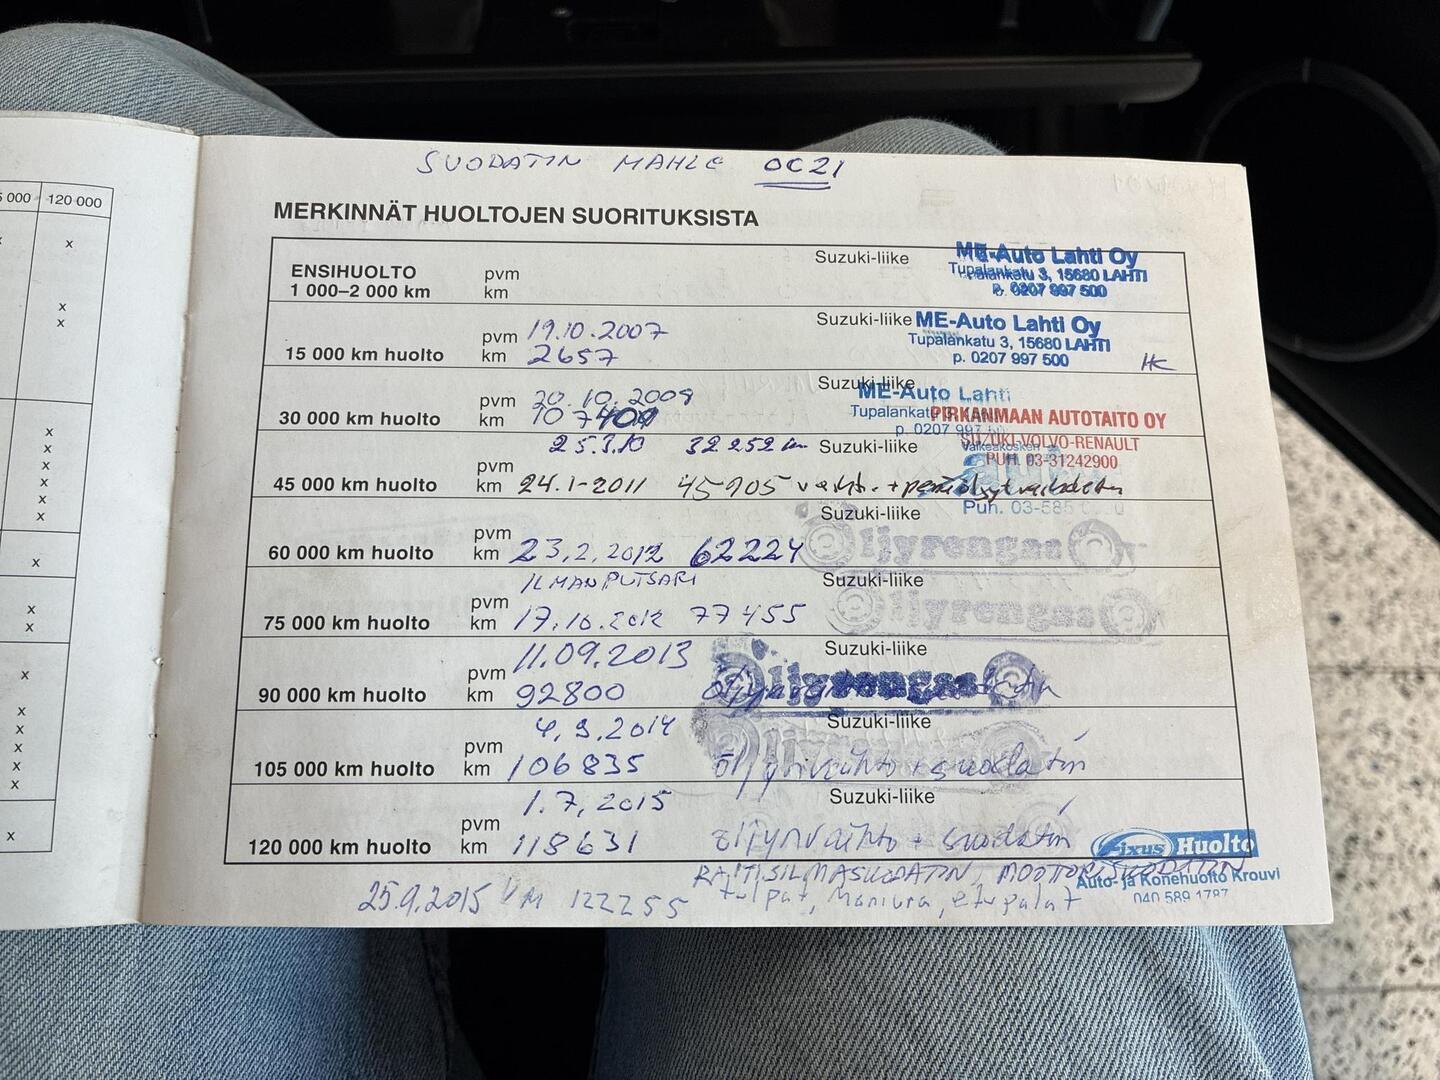 5 000 120 000
SUODATIN MAHLE OC21
MERKINNÄT HUOLTOJEN SUORITUKSISTA
ENSIHUOLTO pvm Suzuki-liike ME-Auto Lahti Oy
1 000–2 000 km km Tupalankatu 3, 15680 LAHTI
p. 0207 997 500
pvm 19.10.2007 Suzuki-liike ME-Auto Lahti Oy
15 000 km huolto km 2657 Tupalankatu 3, 15680 LAHTI
p. 0207 997 500 HK
pvm 20.10.2009 Suzuki-liike ME-Auto Lahti
30 000 km huolto km Tupalankatu 3, PIRKANMAAN AUTOTAITO OY
p. 0207 997 SUZUKI-VOLVO-RENAULT
25.3.10 32252 km Suzuki-liike PUH. 03-31242900
pvm
45 000 km huolto km 24.1-2011 45905
Puh. 03-585
pvm Suzuki-liike
60 000 km huolto km 23.2.2012 62224 Öljyrengas
ILMANPUTSARI Suzuki-liike
pvm
75 000 km huolto km 17.10.2012 77455 Öljyrengas
11.09.2013 Suzuki-liike
pvm
90 000 km huolto km 92800 Öljyrengas
4.9.2014 Suzuki-liike
pvm
105 000 km huolto km 106835 öljynvaihto + suodatin
1.7.2015 Suzuki-liike
pvm
120 000 km huolto km 118631 öljynvaihto + suodatin
Fixus Huolto
RAITISILMASUODATIN, MOOTTORISUODATIN
Auto- ja Konehuolto Krouvi
040 589 1787
25.9.2015 VM 122255 tulpat, etupalat